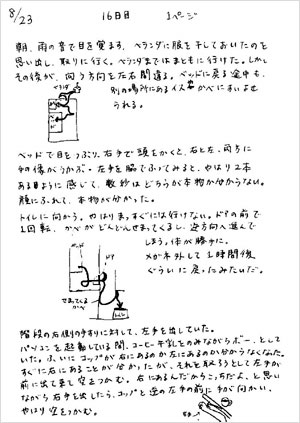 8/23
16日目
1ページ
朝、雨の音で目を覚ます、ベランダに服を干しておいたのを
思い出し、取りに行く。ベランダまではまともに行けた。しかし
その後が、向う方向を左右間違う。ベッドに戻る途中も、
別の場所にあるイスやかべにすいよせ
られる。
ベランダ
ベッドで目をつぶり、右手で頭をかくと、右と左、両方に
手の像がうかぶ。左手を脳でふってみると、やはり2本
あるように感じて、数秒はどちらが本物か分からない。
顔にふれて、本物が分かった。
トイレに向かう。やはりまっすぐには行けない。ドアの前で
1回転、かべがどんどんせまってくるし、逆方向へ進んで
しまう。体が勝手に。
メガネ外して1時間後
ぐらいに戻ったみたいだ。
ドア
せまってくる
かべ
階段の右側の手すりに対して、左手を出していた。
パソコンを起動している間、コーヒー牛乳をのみながらボーとして
いた。ふいに、コップが右にあるのか左にあるのか分からなくなった。
すぐに右にあることが分かったが、それを取ろうとして左手が
前に出て来て空をつかむ。右にあるんだからこっちだよ、と思い
ながら右手を出したら、コップと逆の左手の前に手が向かい、
やはり空をつかむ。